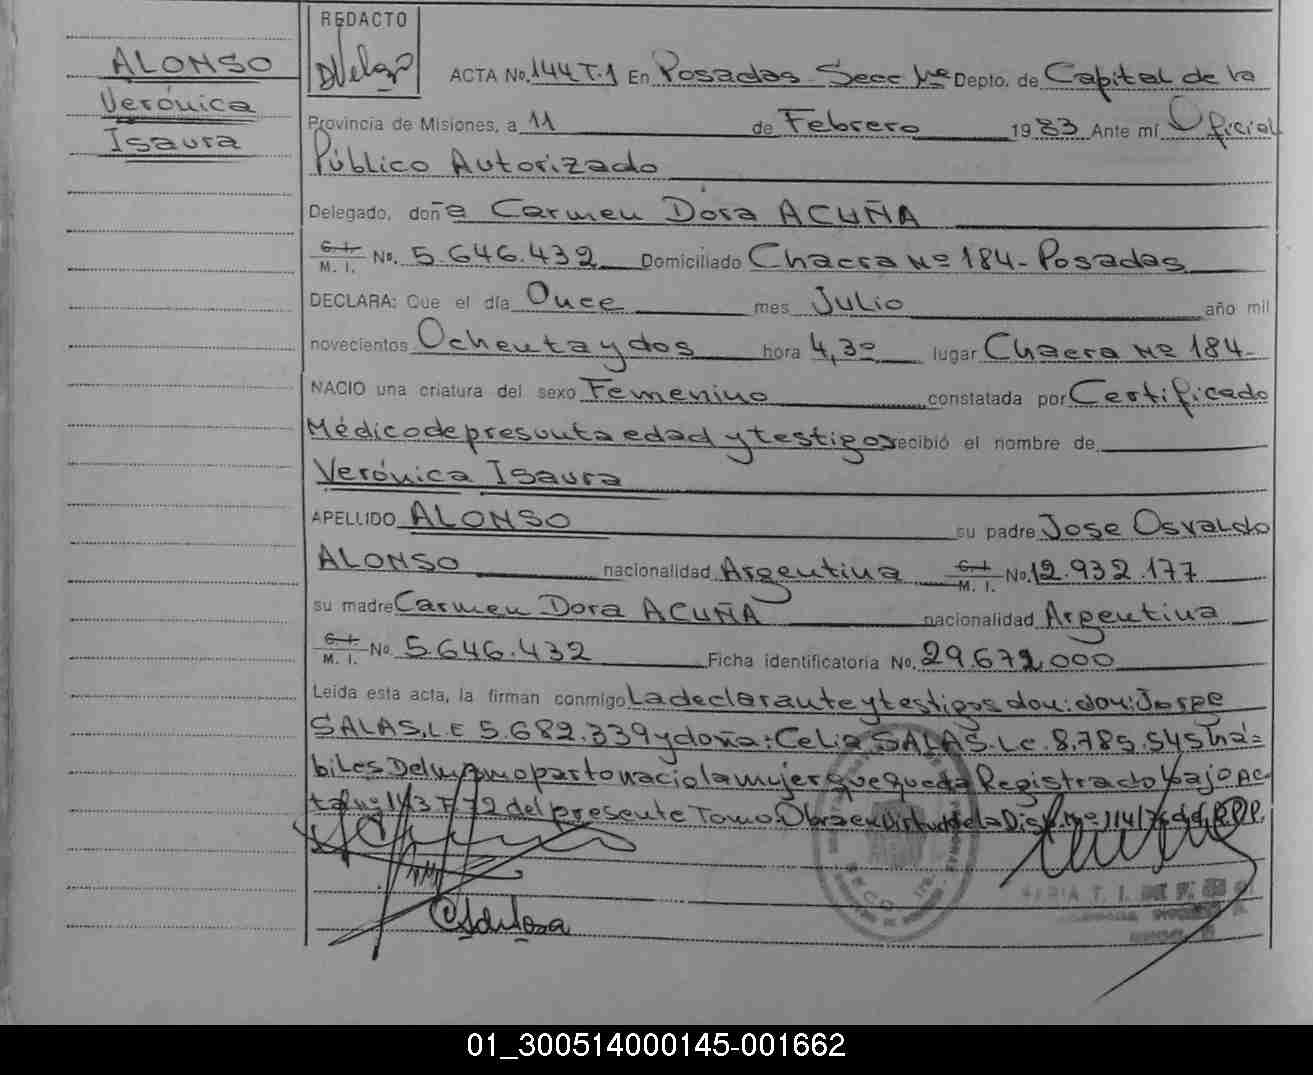 ALONSO
Verónica
Isaura
REDACTO
DVelazo
ACTA No. 144 T.1 En Posadas Secc Nº Depto. de Capital de la
Provincia de Misiones, a 11 de Febrero 1983 Ante mí Oficial
Público Autorizado
Delegado, doña Carmen Dora ACUÑA
C. I. M. I. No. 5.646.432 Domiciliado Chacra Nº 184- Posadas
DECLARA: Que el día Once mes Julio año mil
novecientos Ochenta y dos hora 4,30 lugar Chacra Nº 184-
NACIO una criatura del sexo Femenino constatada por Certificado
Médico de presunta edad y testigos recibió el nombre de
Verónica Isaura
APELLIDO ALONSO su padre Jose Osvaldo
ALONSO nacionalidad Argentina C. I. M. I. No. 12.932.177
su madre Carmen Dora ACUÑA nacionalidad Argentina
C. I. M. I. No. 5.646.432 Ficha identificatoria No. 29.672.000
Leída esta acta, la firman conmigo La declarante y testigos don: don: Jorge
SALAS. L.E 5.682.339 y doña: Celia SALAS. L.C. 8.785.545 há=
biles Del mismo parto nacio la mujer que queda Registrado bajo Ac-
ta Nº 143 T del presente Tomo. Obra en Virtud de la Disp. Nº 114/
01_300514000145-001662